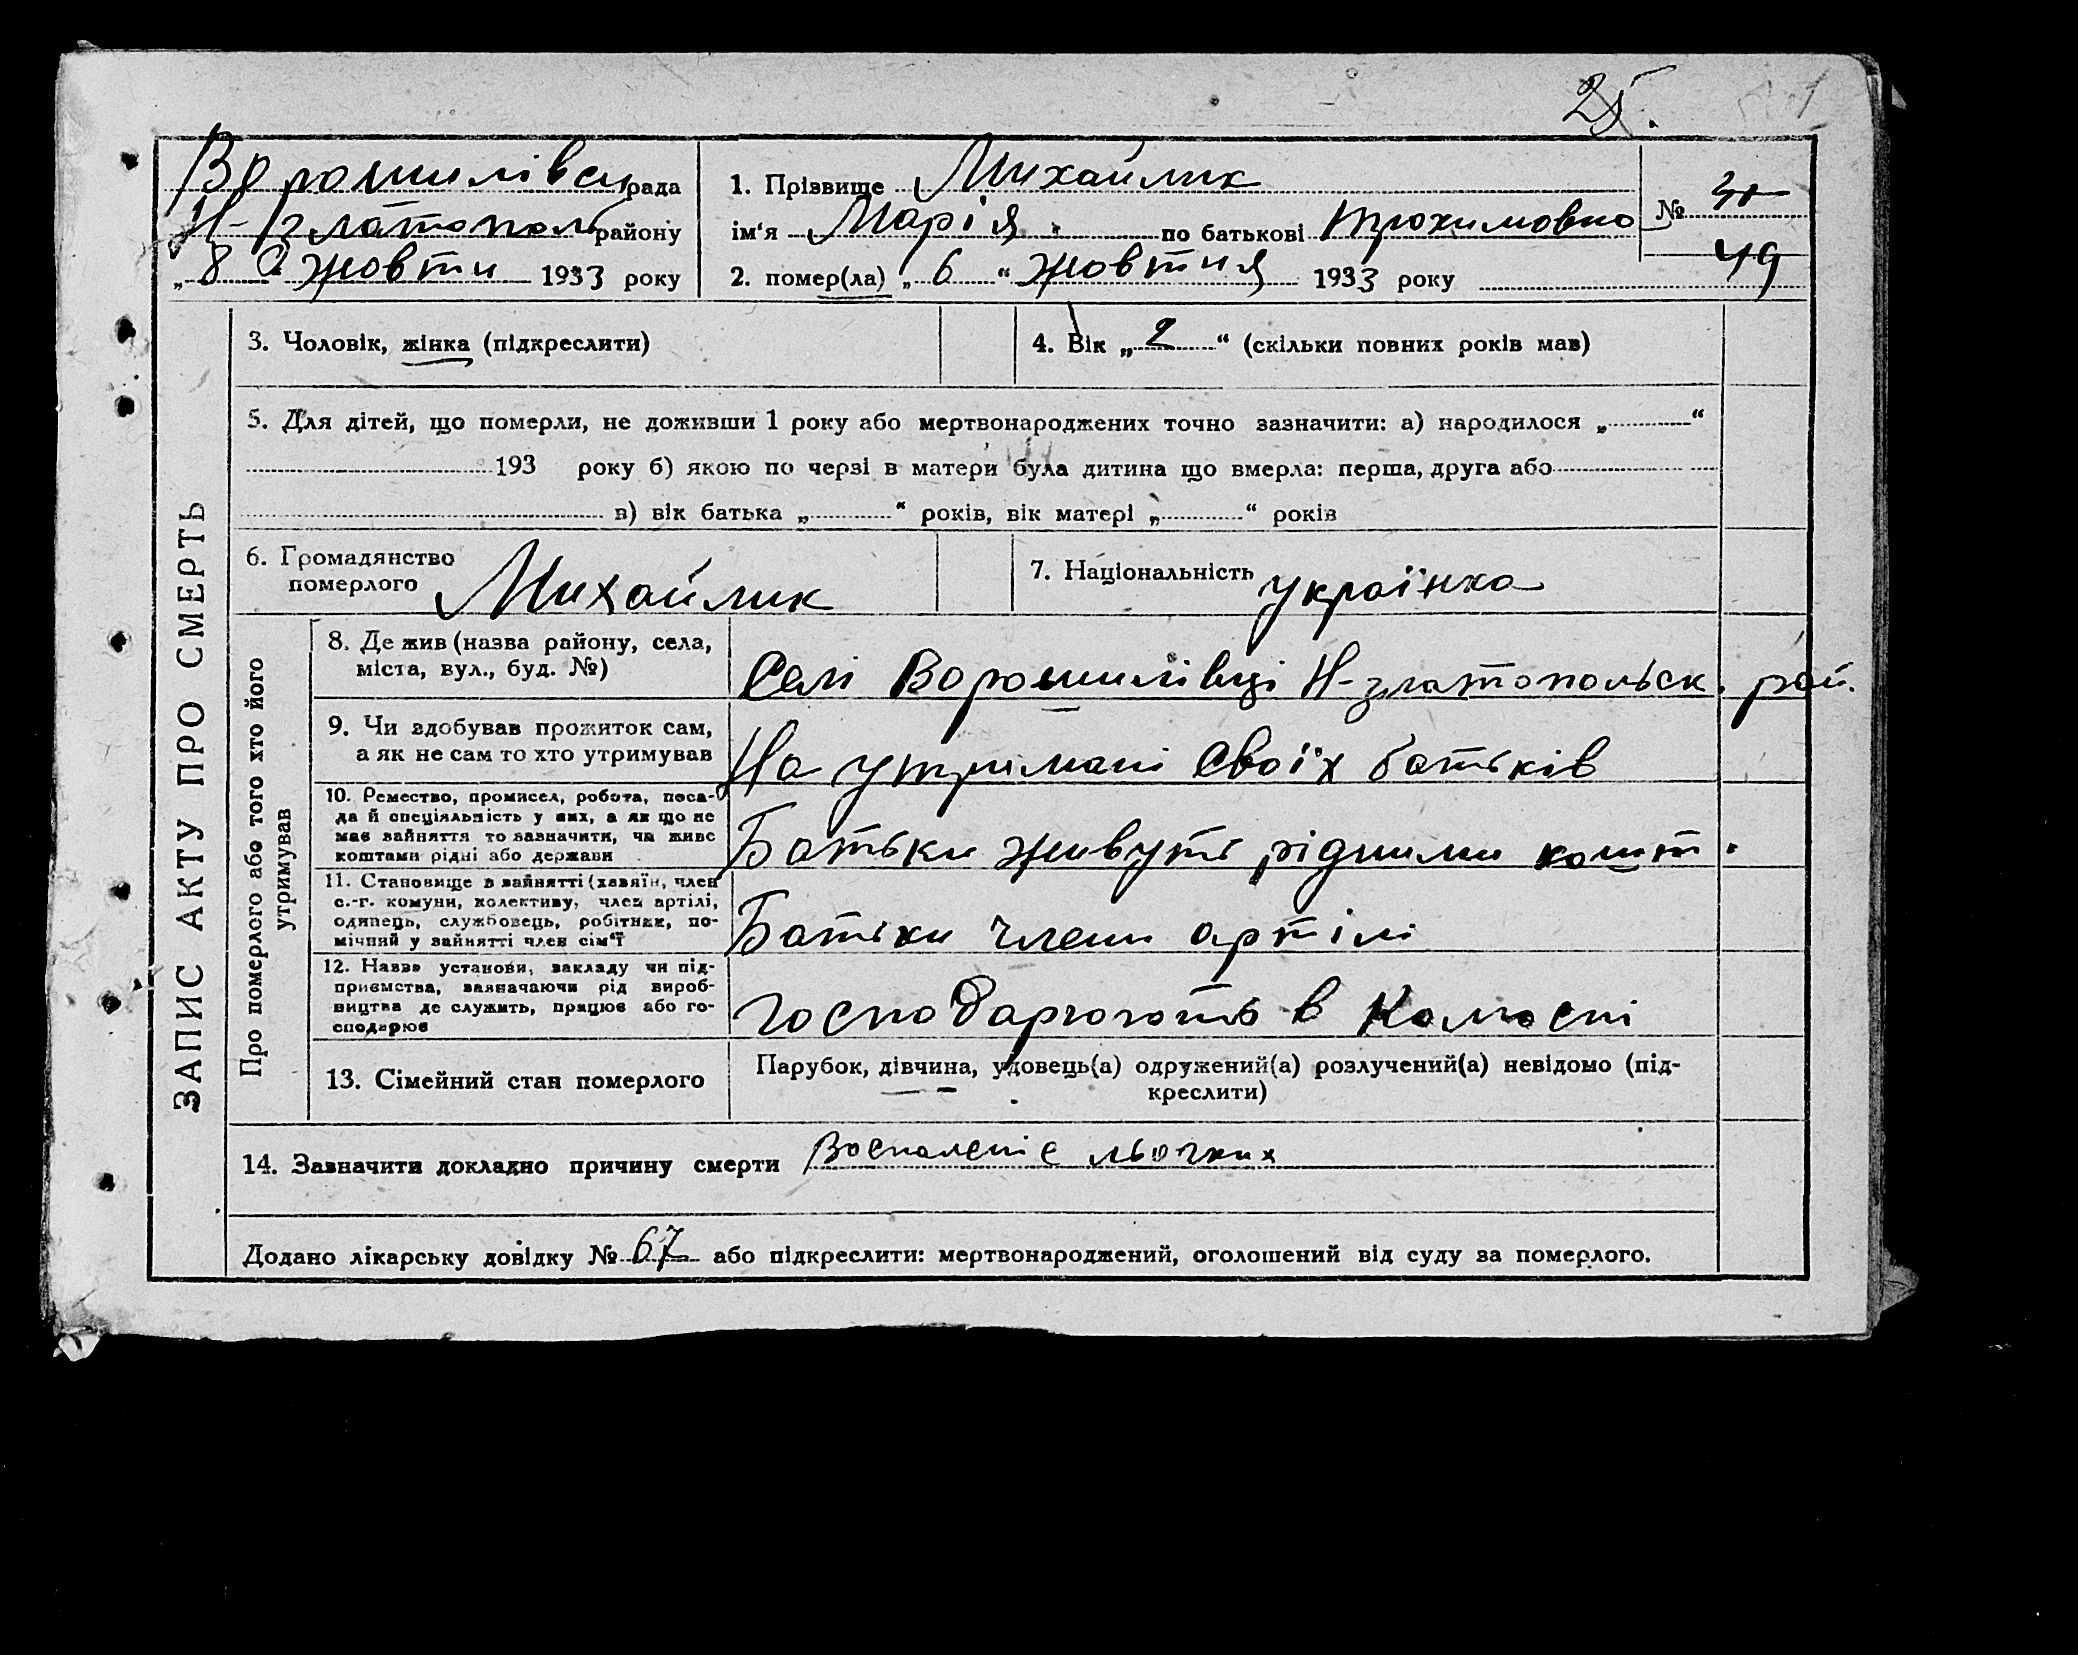 25.
Ворошилівси рада
Н-Златополь району
„8“ жовти 1933 року
1. Прізвище Михайлик
ім‘я Марія по батькові Трохимовна
2. помер(ла) „6“ жовтня 1933 року
№
49
3. Чоловік, жінка (підкреслити)
4. Вік „2“ (скільки повних років мав)
5. Для дітей, що померли, не доживши 1 року або мертвонароджених точно зазначити: а) народилося „ “
193 року б) якою по черзі в матери була дитина що вмерла: перша, друга або
в) вік батька „ “ років, вік матері „ “ років
6. Громадянство
померлого Михайлик
7. Національність українка
ЗАПИС АКТУ ПРО СМЕРТЬ
Про померлого або того хто його
утримував
8. Де жив (назва району, села,
міста, вул., буд. №)
Селі Ворошилівці Н-златопольск. рай.
9. Чи здобував прожиток сам,
а як не сам то хто утримував
На утримані своїх батьків
10. Ремество, промисел, робота, поса-
да й спеціяльність у яких, а як що не
має зайняття то зазначити, чи живе
коштами рідні або держави
Батьки живуть рідними кошт.
11. Становище в зайнятті (хазяїн, член
с.-г. комуни, колективу, член артілі,
одинець, службовець, робітник, по-
мічний у зайнятті член сім‘ї
Батьки члени артілі
12. Назва установи, закладу чи під-
приємства, зазначаючи рід вироб-
ництва де служить, працює або го-
сподарює
господарюють в Колгоспі
13. Сімейний стан померлого
Парубок, дівчина, удовець(а) одружений(а) розлучений(а) невідомо (під-
креслити)
14. Зазначити докладно причину смерти Воспаленіє льогких
Додано лікарську довідку № 67 або підкреслити: мертвонароджений, оголошений від суду за померлого.